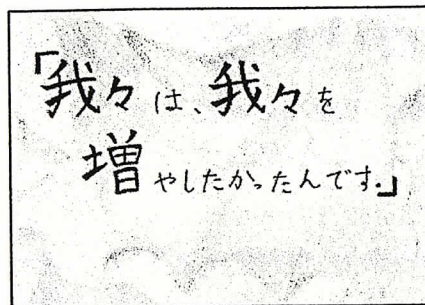 「我々は、我々を
増やしたかったんです。」